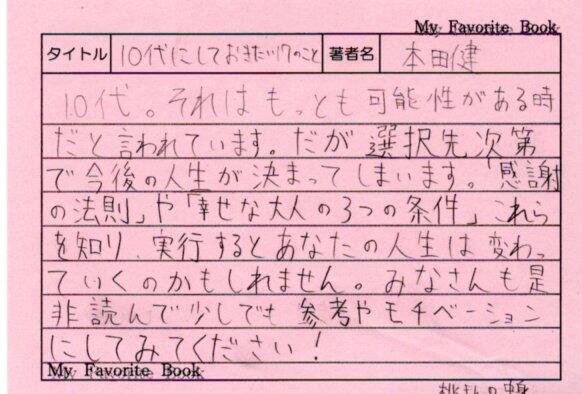 My Favorite Book
タイトル 10代にしておきたい17のこと 著者名 本田健
10代。それはもっとも可能性がある時
だと言われています。だが選択先次第
で今後の人生が決まってしまいます。「感謝
の法則」や「幸せな大人の3つの条件」これら
を知り、実行するとあなたの人生は変わっ
ていくのかもしれません。みなさんも是
非読んで少しでも参考やモチベーション
にしてみてください!
My Favorite Book